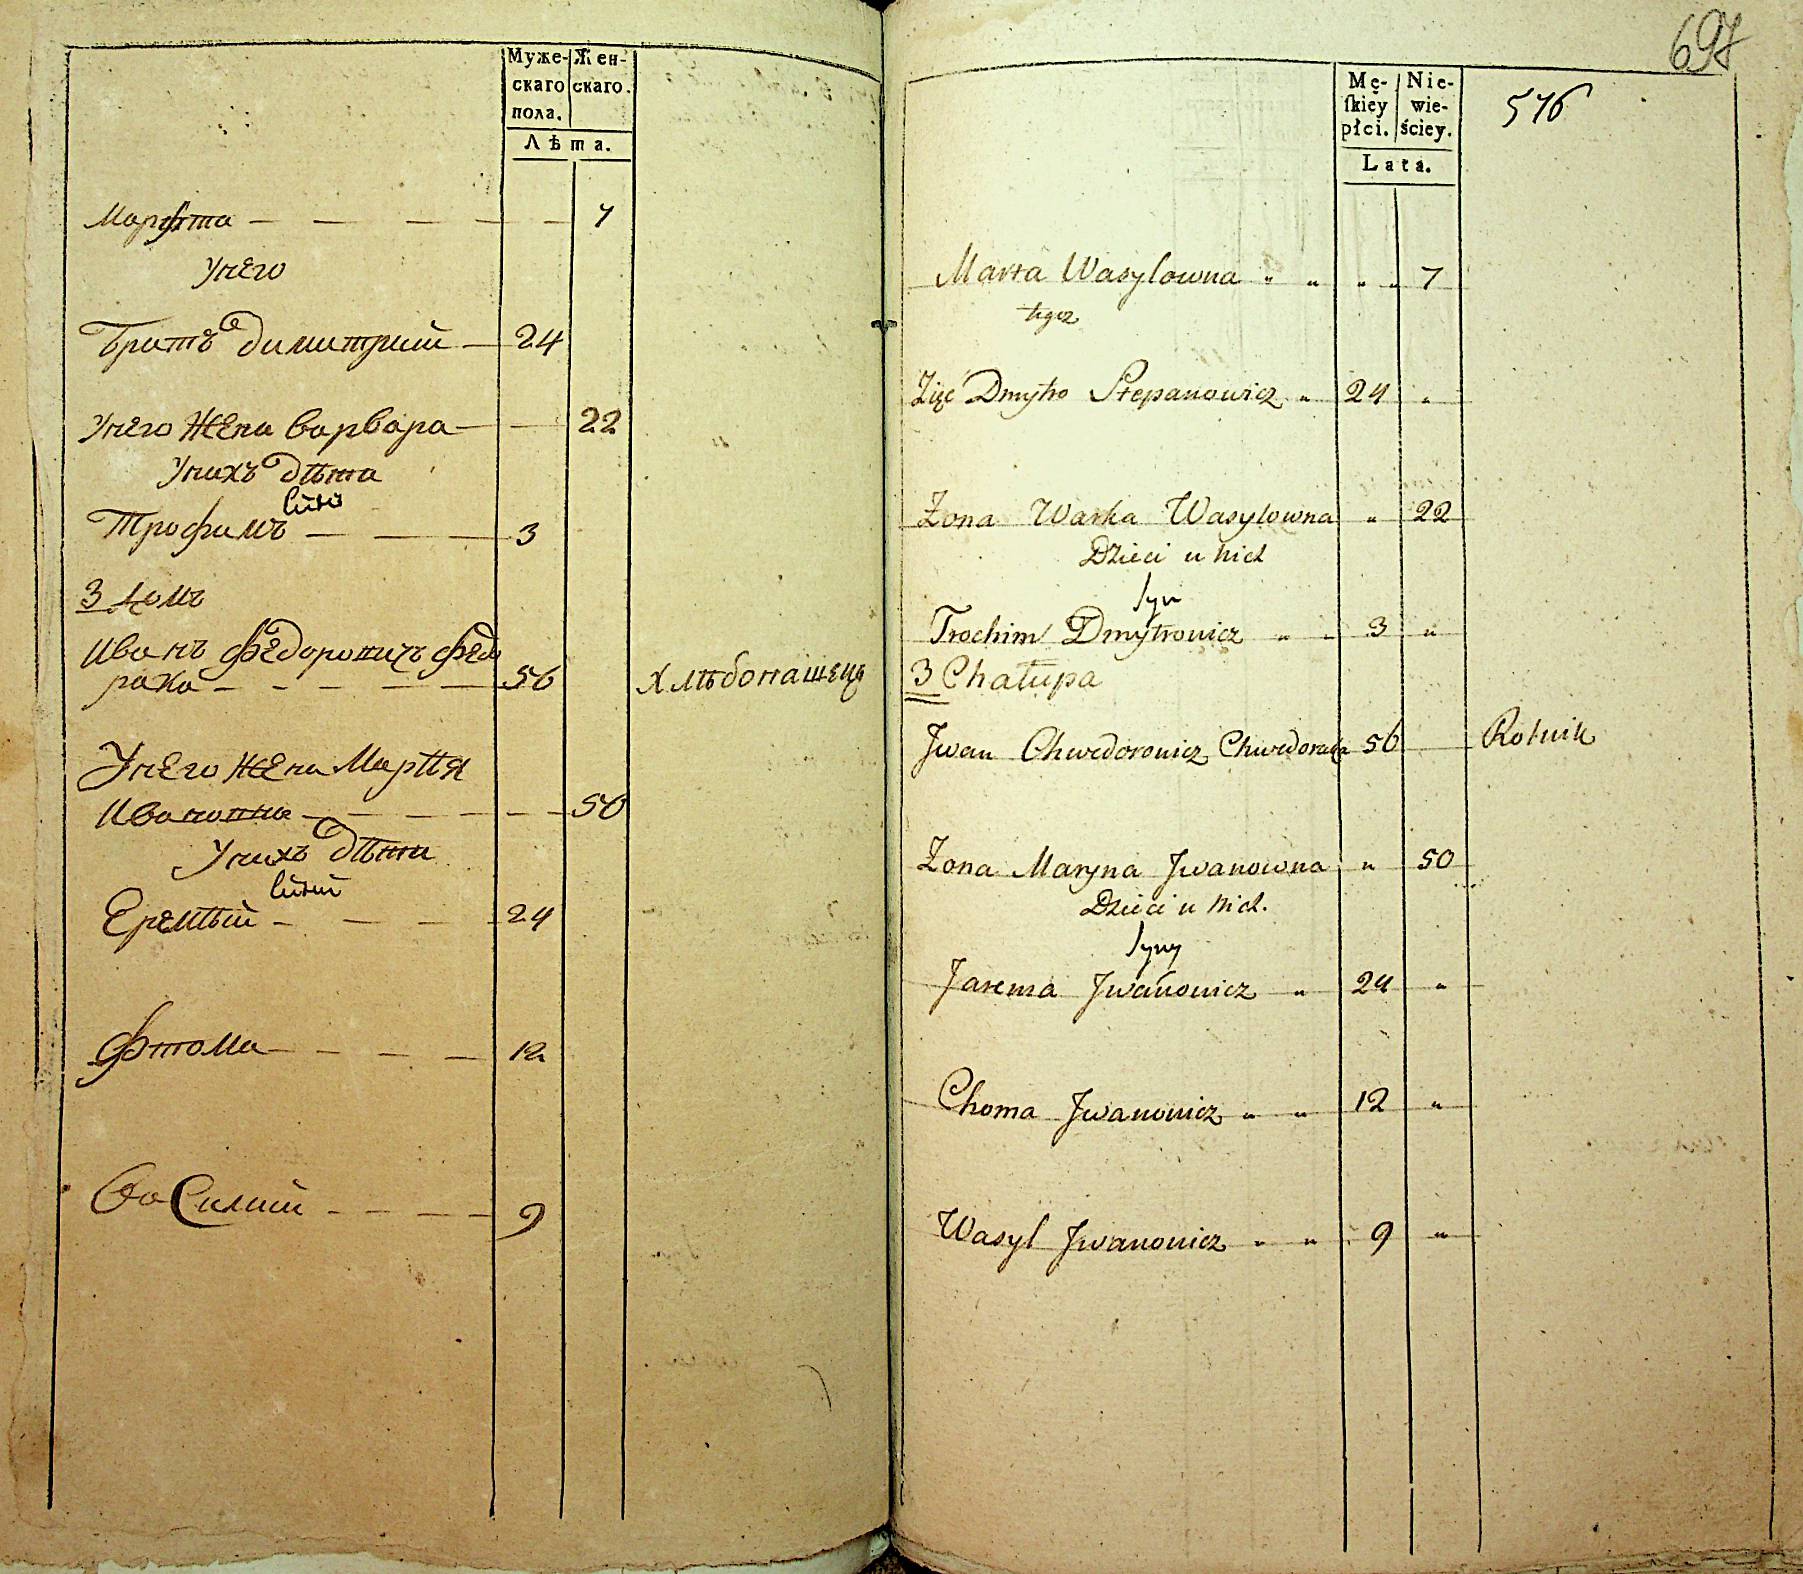 Муже-
скаго
пола.
Жен-
скаго.
Лѣта.
Марѳта 7
Унего
Братъ Димитрий 24
Унего жена Варвара 22
Унихъ дѣти
Трофимъ 3
3 домъ
Иванъ Федоровичъ Федо
рака 56 Хлѣбопашецъ
Унего жена Марія
Ивановна 50
Унихъ дѣти
Еремѣй 24
Фтома 12
Василий 9
697
Mę-
ſkiey
płci.
Nie-
wie-
ściey.
Lata.
576
Marta Wasylowna " " " " 7
tegoż
Zięć Dmytro Stepanowicz " 24 "
Zona Warka Wasylowna " 22
Dzieci u nich
Syn
Trochim Dmytrowicz " " 3 "
3 Chałupa
Jwan Chwedorowicz Chwedoraka 56 Rolnik
Zona Maryna Jwanowna " 50
Dzieci u nich.
Syny
Jarema Jwanowicz " 24 "
Choma Jwanowicz " " 12 "
Wasyl Jwanowicz " " 9 "